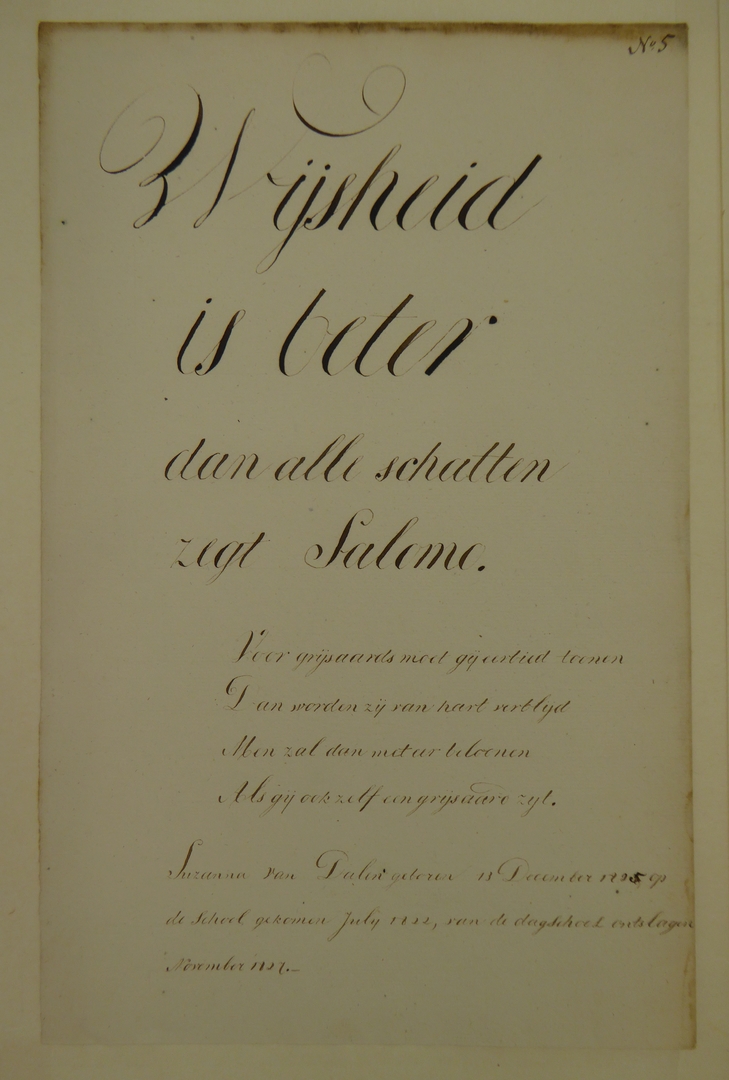 No 5
Wijsheid
is beter
dan alle schatten
zegt Salomo.
Voor grijsaards moet gij eerbied toonen
Dan worden zij van hart verblyd
Men zal dan met eer beloonen
Als gij ook zelf een grijsaard zyt.
Suzanna Van Dalen geboren 13 December op
de School gekomen July 1822, van de dagschool ontslagen
November 1827.